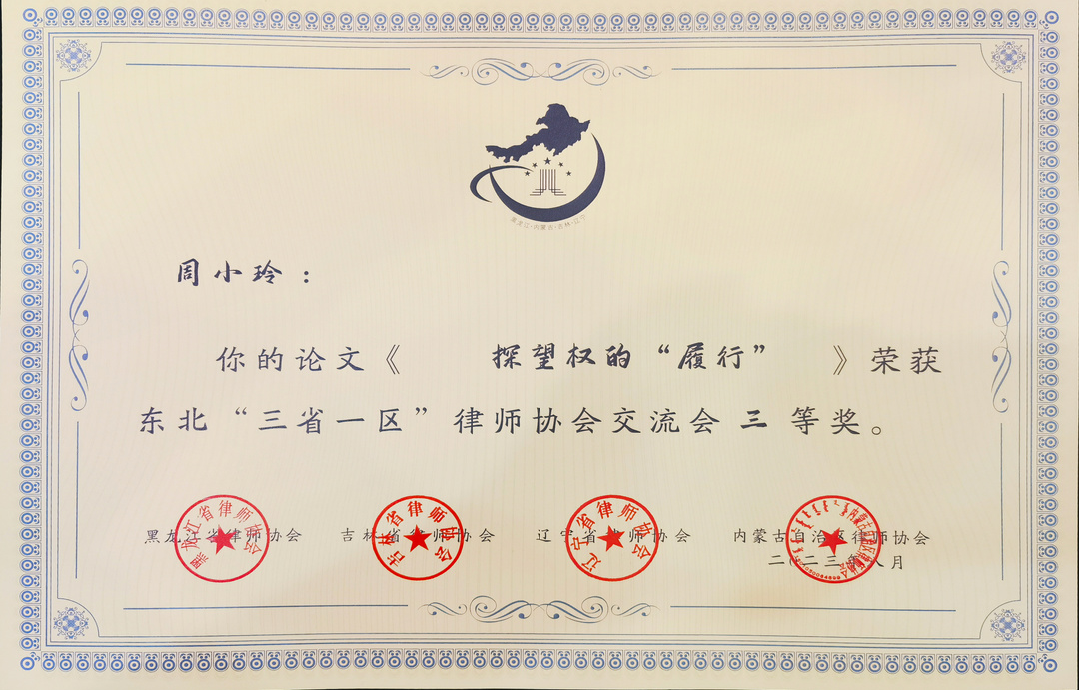 黑龙江·内蒙古·吉林·辽宁
周小玲：
你的论文《 探望权的“履行” 》荣获
东北“三省一区”律师协会交流会 三 等奖。
黑龙江省律师协会 吉林省律师协会 辽宁省律师协会 内蒙古自治区律师协会
二〇二三年八月
黑龙江省律师协会
吉林省律师协会
辽宁省律师协会
内蒙古自治区律师协会